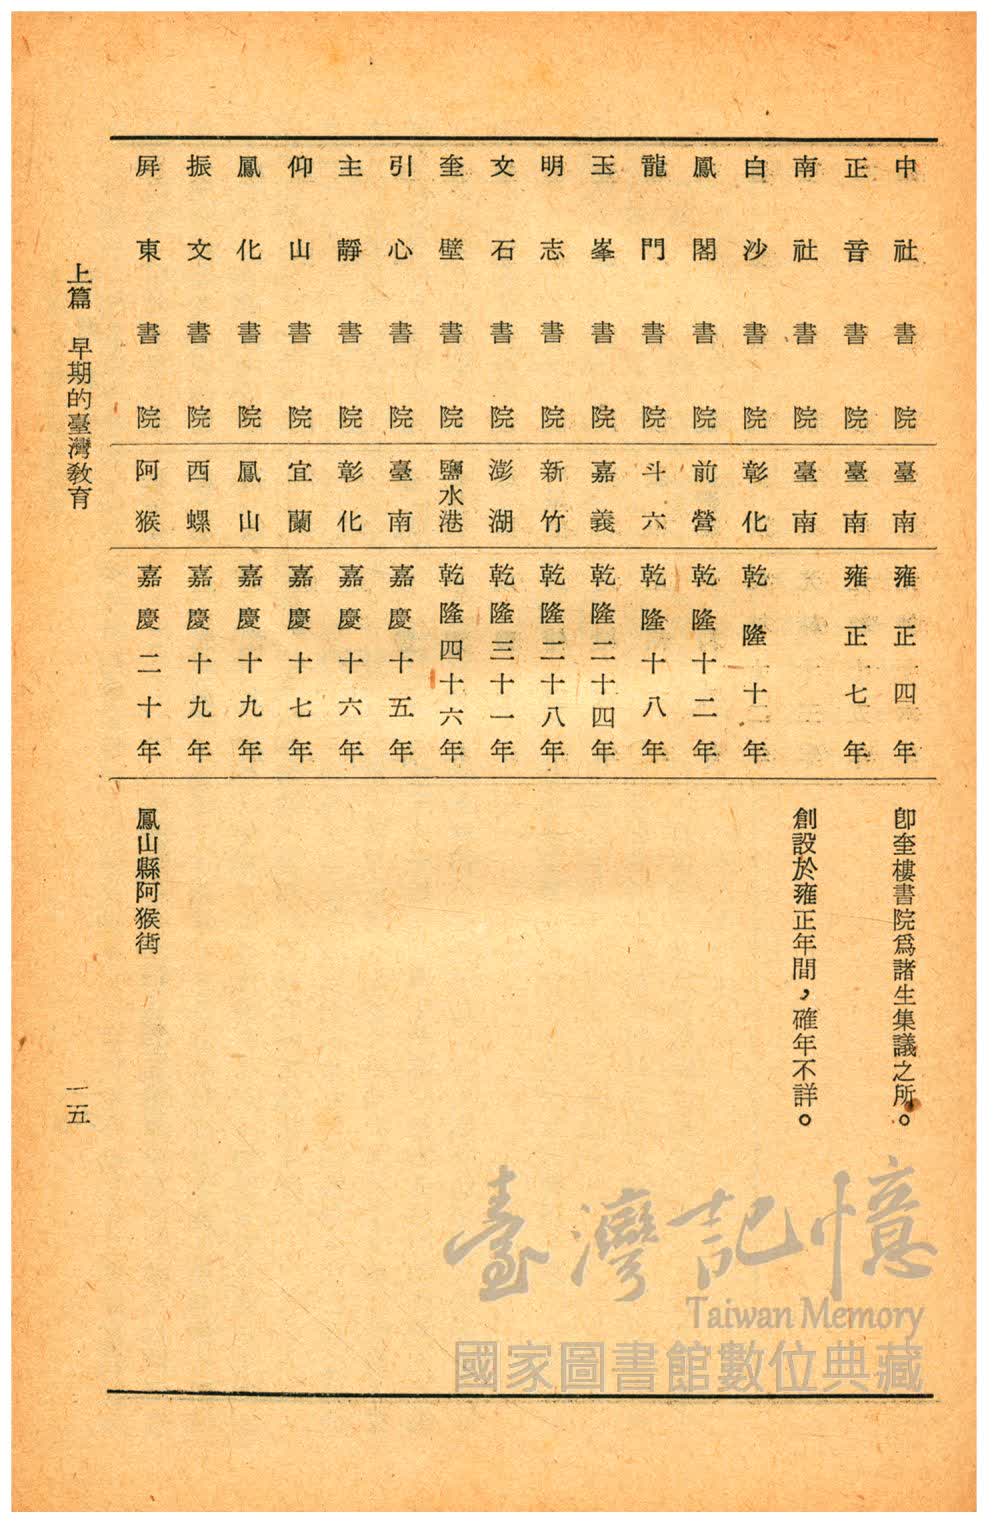 中社書院 臺南 雍正四年 卽奎樓書院爲諸生集議之所。
正音書院 臺南 雍正七年
南社書院 臺南 創設於雍正年間，確年不詳。
白沙書院 彰化 乾隆十二年
鳳閣書院 前營 乾隆十二年
龍門書院 斗六 乾隆十八年
玉峯書院 嘉義 乾隆二十四年
明志書院 新竹 乾隆二十八年
文石書院 澎湖 乾隆三十一年
奎壁書院 鹽水港 乾隆四十六年
引心書院 臺南 嘉慶十五年
主靜書院 彰化 嘉慶十六年
仰山書院 宜蘭 嘉慶十七年
鳳化書院 鳳山 嘉慶十九年
振文書院 西螺 嘉慶十九年
屛東書院 阿猴 嘉慶二十年 鳳山縣阿猴街
上篇 早期的臺灣教育
一五
臺灣記憶
Taiwan Memory
國家圖書館數位典藏